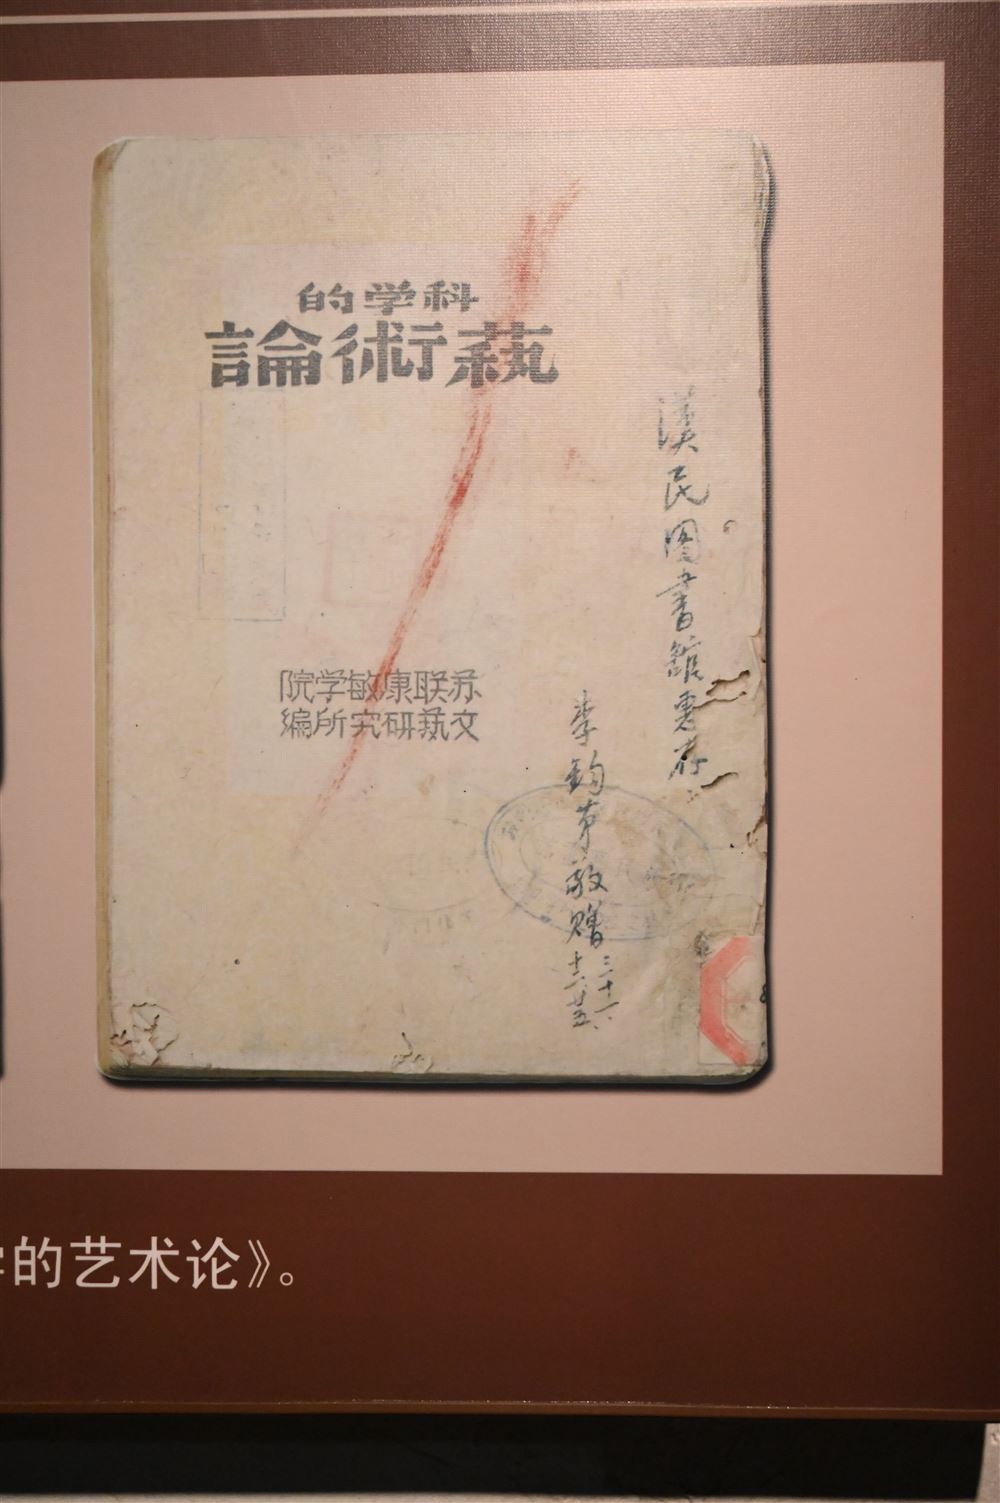 科学的
藝術論
苏联康敏学院
文藝研究所編
漢民图書館惠存
李鈞苐敬赠
三十一、
十二、廿五、
学的艺术论》。